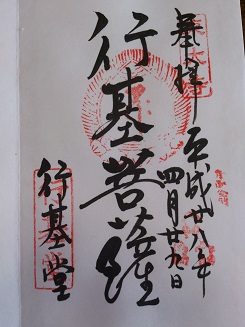 奉拝 平成廿八年
四月廿九日
行基菩薩
行基堂